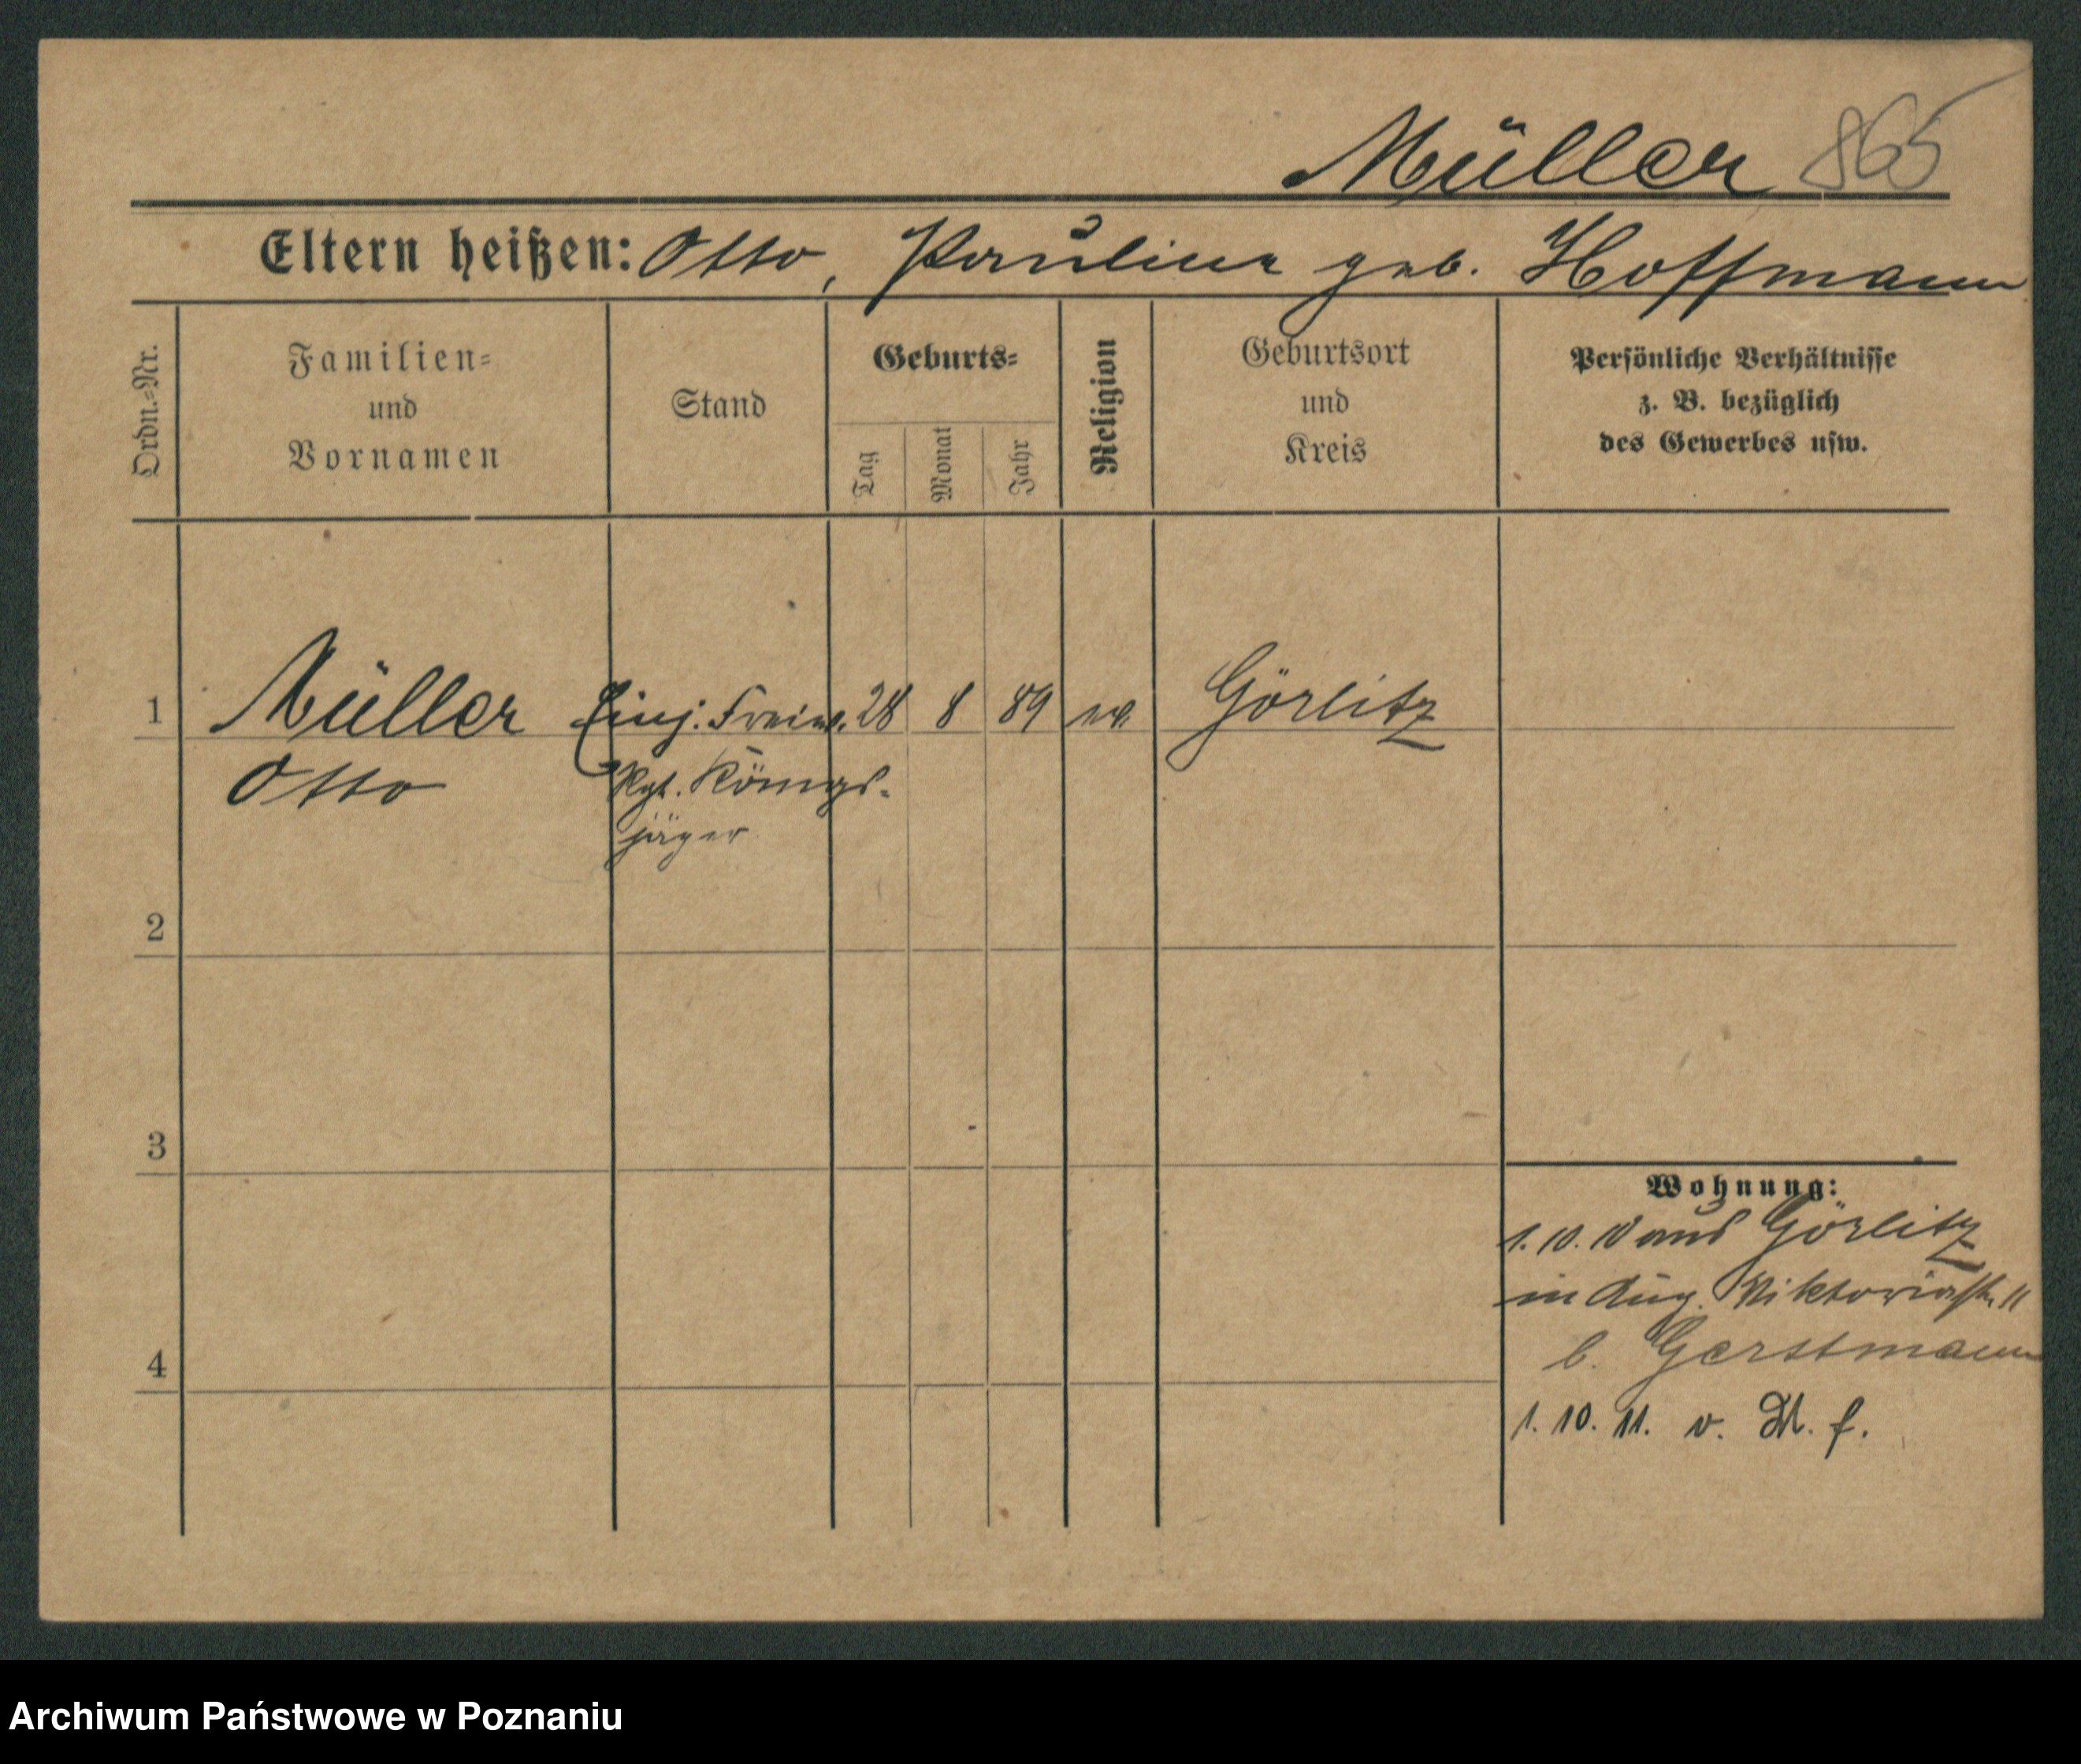 Müller 865
Eltern heißen: Otto, Pauline geb. Hoffmann
Ordn.-Nr.
Familien-
und
Vornamen
Stand
Geburts-
Tag
Monat
Jahr
Religion
Geburtsort
und
Kreis
Persönliche Verhältnisse
z. B. bezüglich
des Gewerbes usw.
1 Müller Einj. Freiw. 28 8 89 ev. Görlitz
Otto Rgt. Königs-
jäger
2
3
Wohnung:
1. 10. 10 aus Görlitz
in Aug. Viktoriastr. 11
b. Gerstmann
4
1. 10. 11. v. M. f.
Archiwum Państwowe w Poznaniu